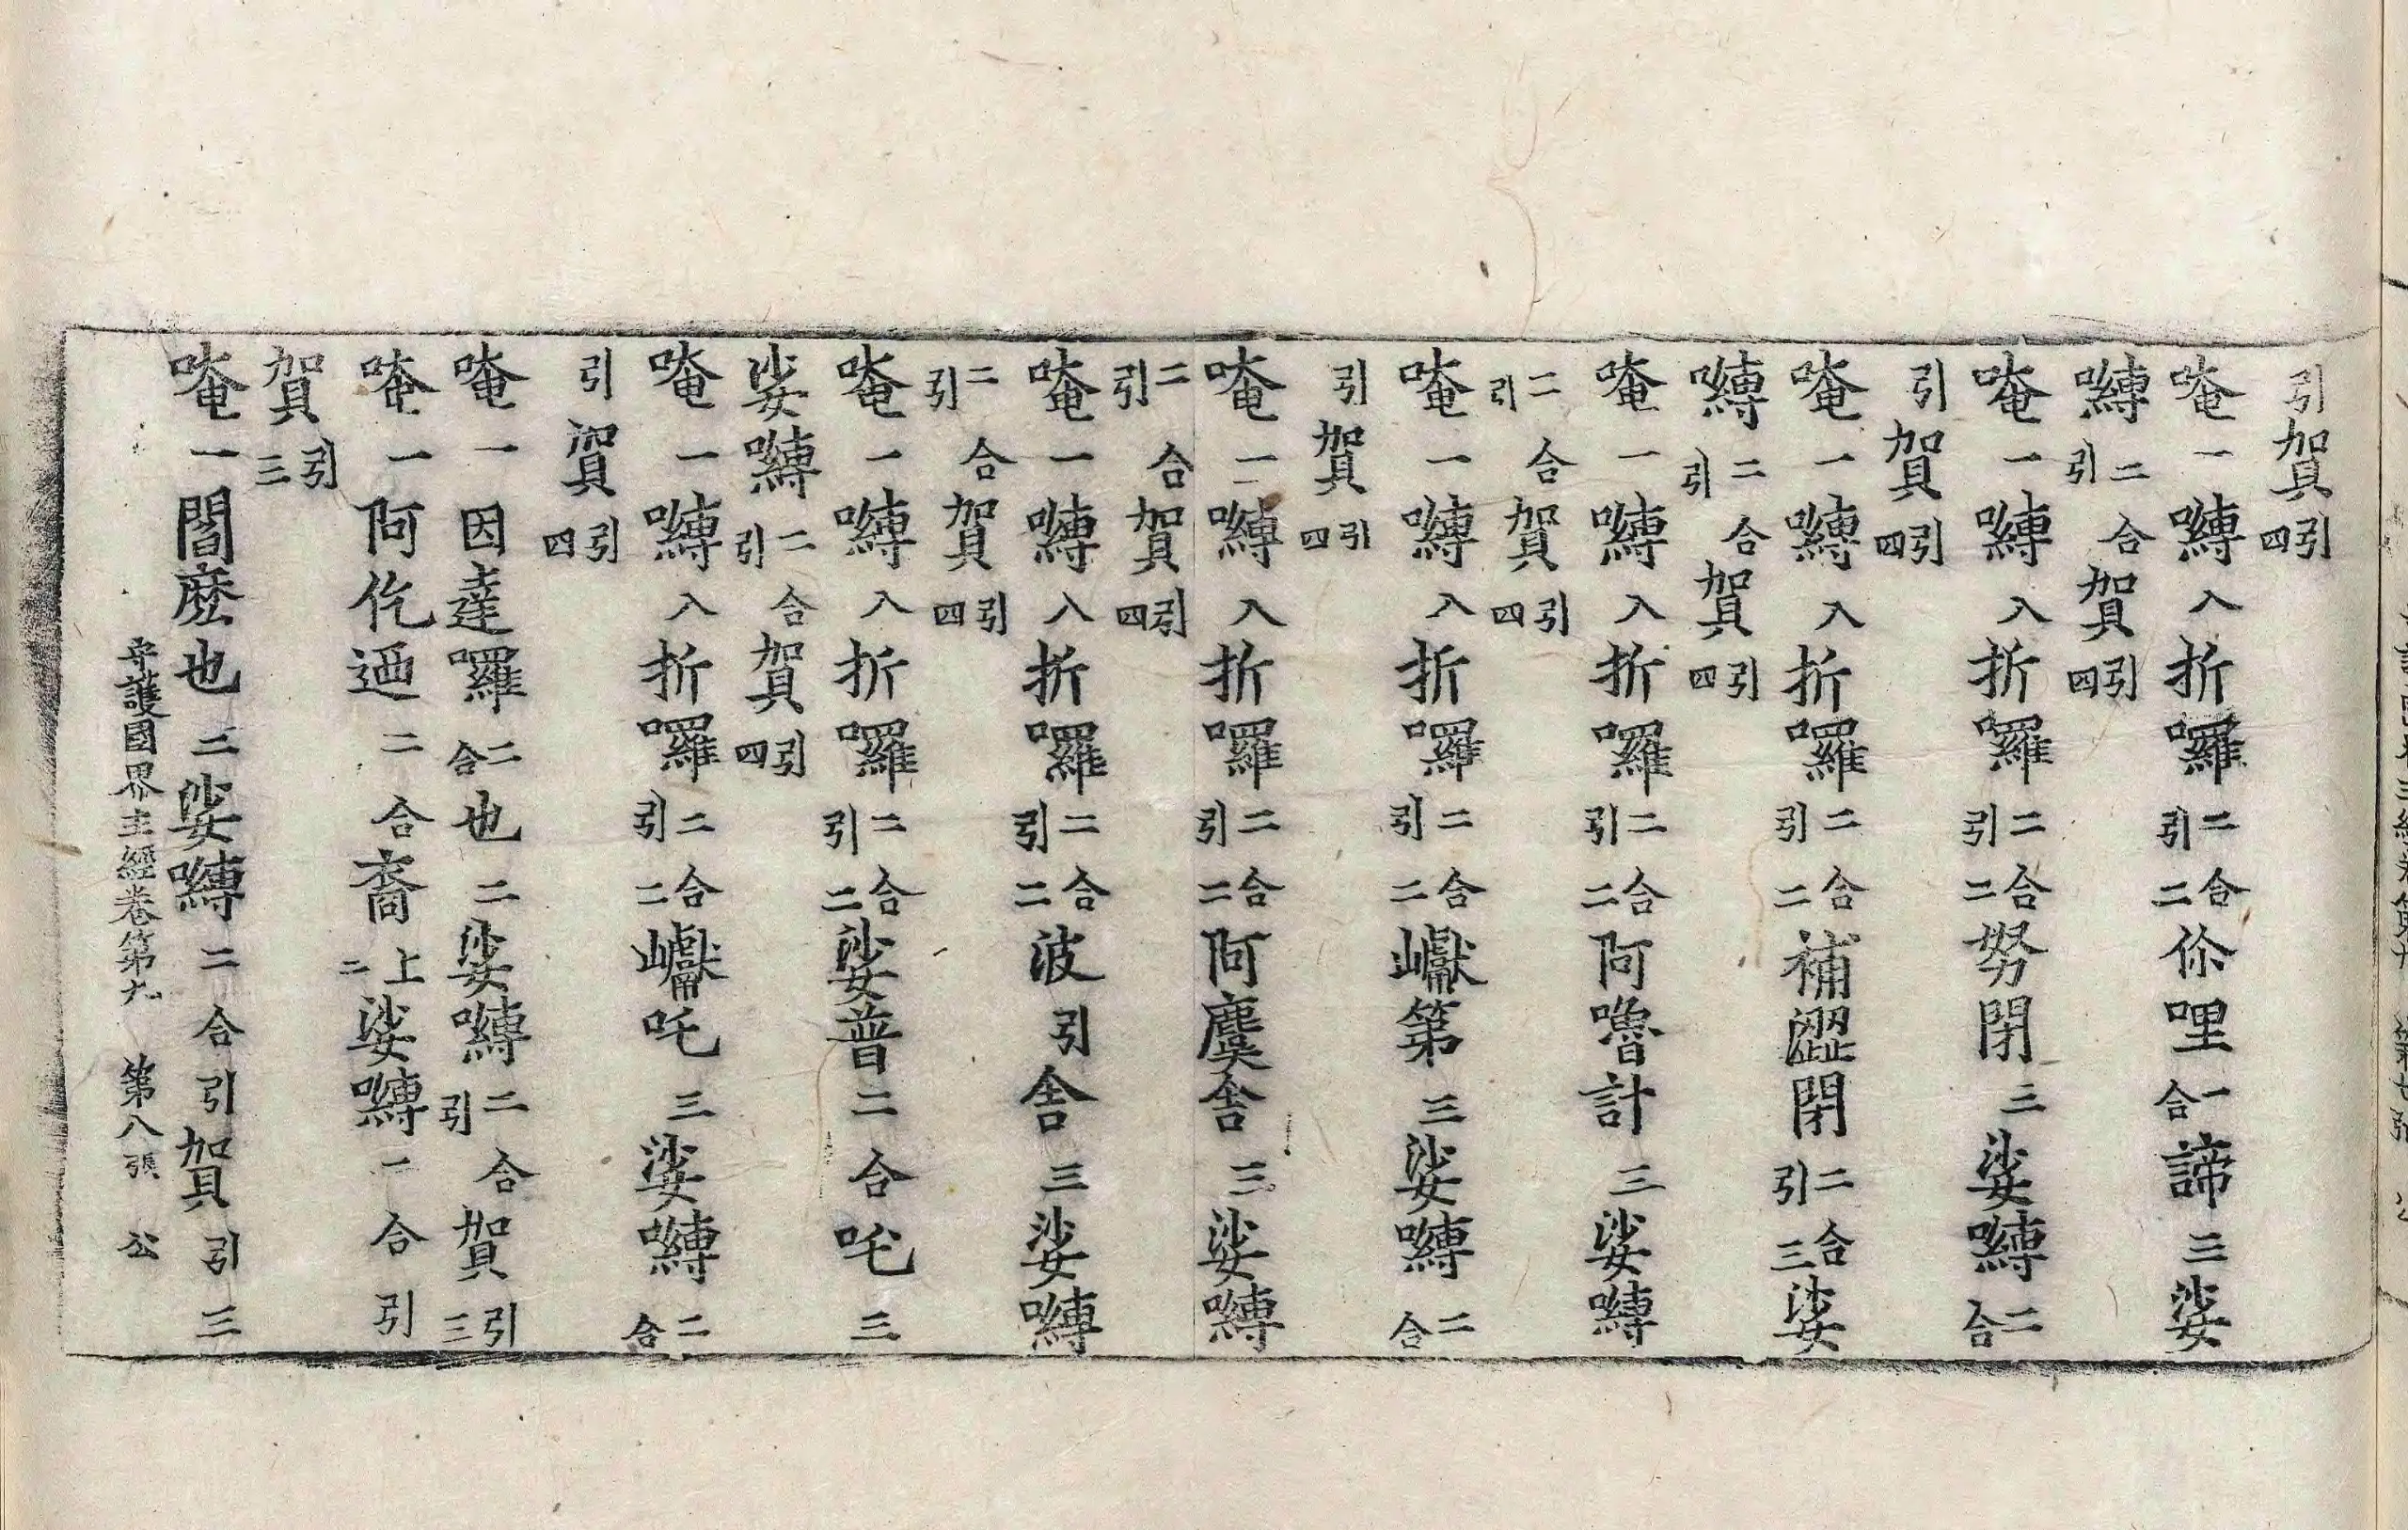 引賀引四
唵一嚩入折囉二合引二伱哩一合諦三娑
嚩二合引賀引四
唵一嚩入折囉二合引二努閉三娑嚩二合
引賀引四
唵一嚩入折囉二合引二補澀閉二合引三娑
嚩二合引賀引四
唵一嚩入折囉二合引二阿嚕計三娑嚩
二合引賀引四
唵一嚩入折囉二合引二巘第三娑嚩二合
引賀引四
唵一嚩入折囉二合引二阿麌舍三娑嚩
二合引賀引四
唵一嚩入折囉二合引二波引舍三娑嚩
二合引賀引四
唵一嚩入折囉二合引二娑普二合吒三
娑嚩二合引賀引四
唵一嚩入折囉二合引二巘吒三娑嚩二合
引賀引四
唵一因達囉二合也二娑嚩二合引賀引三
唵一阿仡迺二合裔上二娑嚩一合引
賀引三
唵一閻麽也二娑嚩二合引賀引三
守護國界主經卷第九 第八張 公